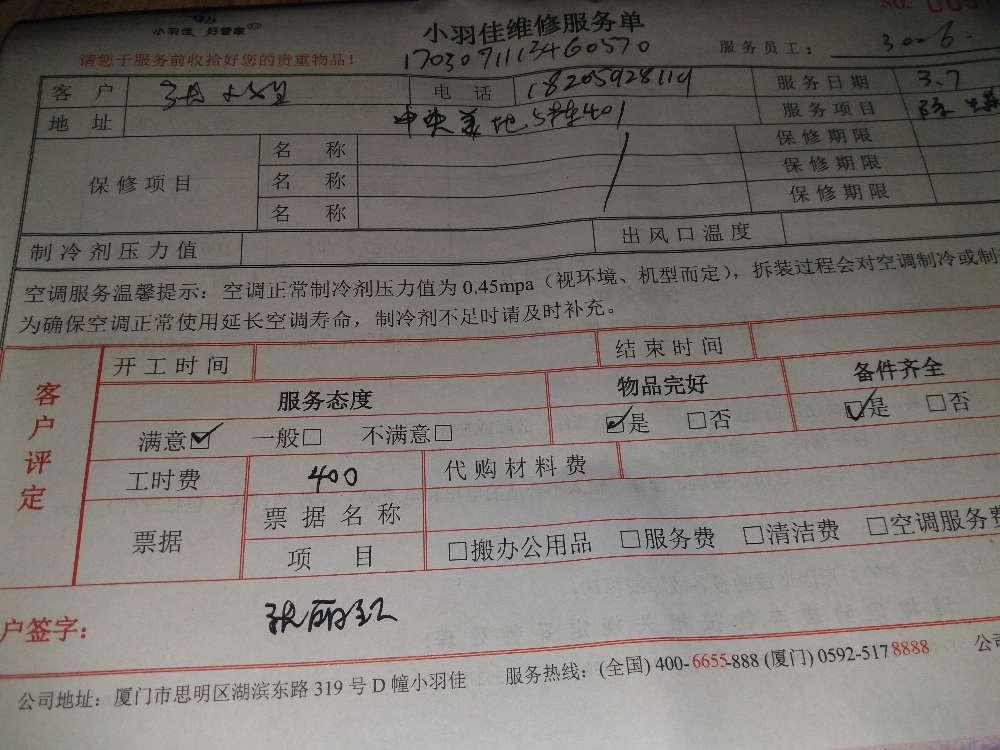 小羽佳 好管家
小羽佳维修服务单
NO.
请您于服务前收拾好您的贵重物品!
17030711123460570
服务员工: 3006.
客户 电话 18205928119 服务日期 3.7
地址 中央美地5栋401 服务项目
保修项目 名称 保修期限
名称 保修期限
名称 保修期限
制冷剂压力值 出风口温度
空调服务温馨提示:空调正常制冷剂压力值为0.45mpa(视环境、机型而定),拆装过程会对空调制冷或制
为确保空调正常使用延长空调寿命,制冷剂不足时请及时补充。
客户评定
开工时间 结束时间
服务态度 物品完好 备件齐全
满意☑ 一般□ 不满意□ ☑是 □否 ☑是 □否
工时费 400 代购材料费
票据 票据名称
项目 □搬办公用品 □服务费 □清洁费 □空调服务费
户签字: 张丽红
公司地址:厦门市思明区湖滨东路319号D幢小羽佳 服务热线:(全国)400-6655-888(厦门)0592-5178888 公司